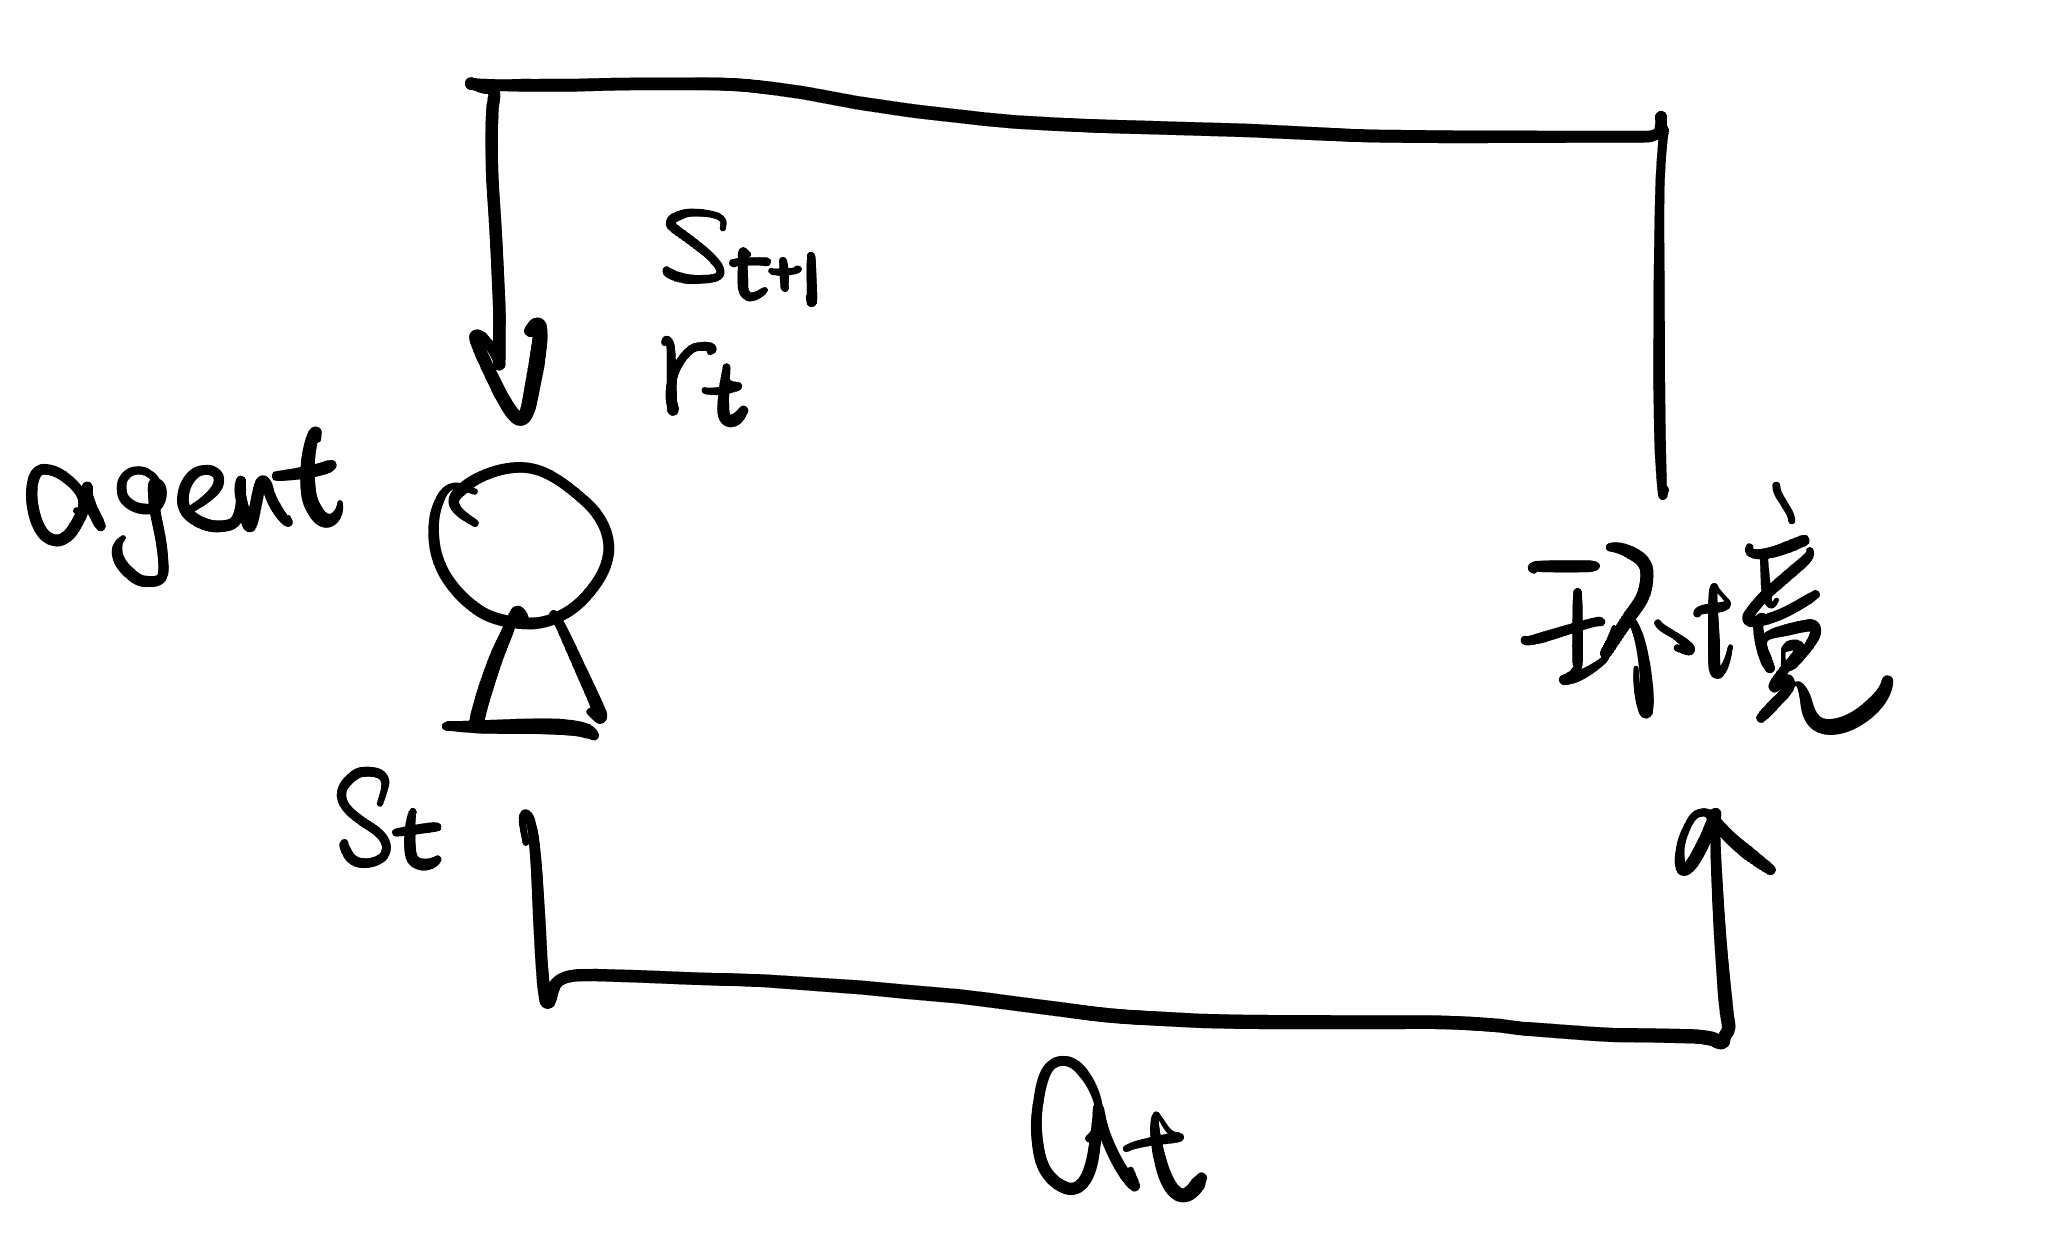 S_{t+1}
r_t
agent
环境
S_t
a_t